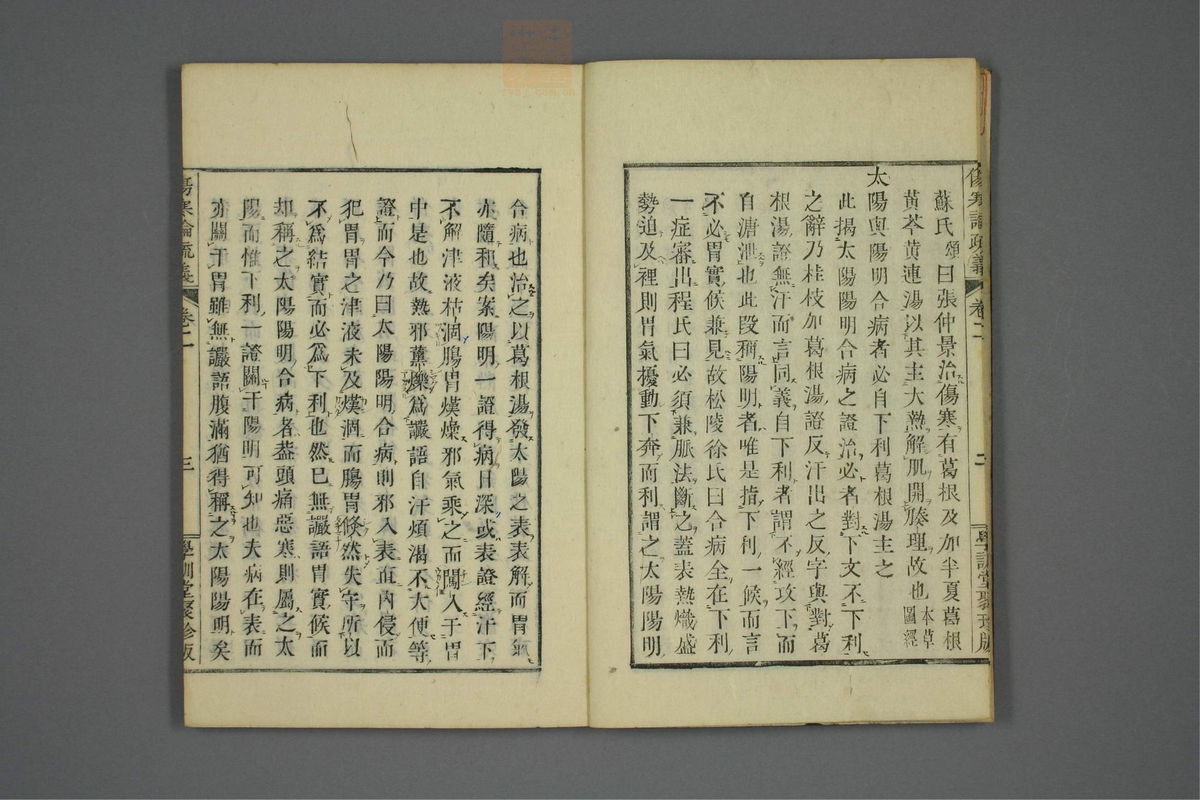 蘇氏頌曰張仲景治傷寒有葛根及加半夏葛根
黃芩黃連湯以其主大熱解肌開腠理故也本草圖經
太陽與陽明合病者必自下利葛根湯主之
此揭太陽陽明合病之證治必者對下文不下利
之辭乃桂枝加葛根湯證反汗出之反字與對葛
根湯證無汗而言同義自下利者謂不經攻下而
自溏泄也此段稱陽明者唯是指下利一候而言
不必胃實候兼見故松陵徐氏曰合病全在下利
一症審出程氏曰必須兼脈法斷之蓋表熱熾盛
勢迫及裡則胃氣擾動下奔而利謂之太陽陽明
合病也治之以葛根湯發太陽之表表解而胃氣
亦隨和矣案陽明一證得病日深或表證經汗下
不解津液枯涸腸胃熯燥邪氣乘之而闖入于胃
中是也故熱邪薰爍爲讝語自汗煩渴不大便等
證而今乃曰太陽陽明合病則邪入表直內侵而
犯胃胃之津液未及熯涸而腸胃倐然失守所以
不爲結實而必爲下利也然已無讝語胃實候而
却稱之太陽陽明合病者葢頭痛惡寒則屬之太
陽而惟下利一證關于陽明可知也夫病在表而
亦關于胃雖無讝語腹滿猶得稱之太陽陽明矣
傷寒論疏義
卷二
三
學訓堂聚珍版